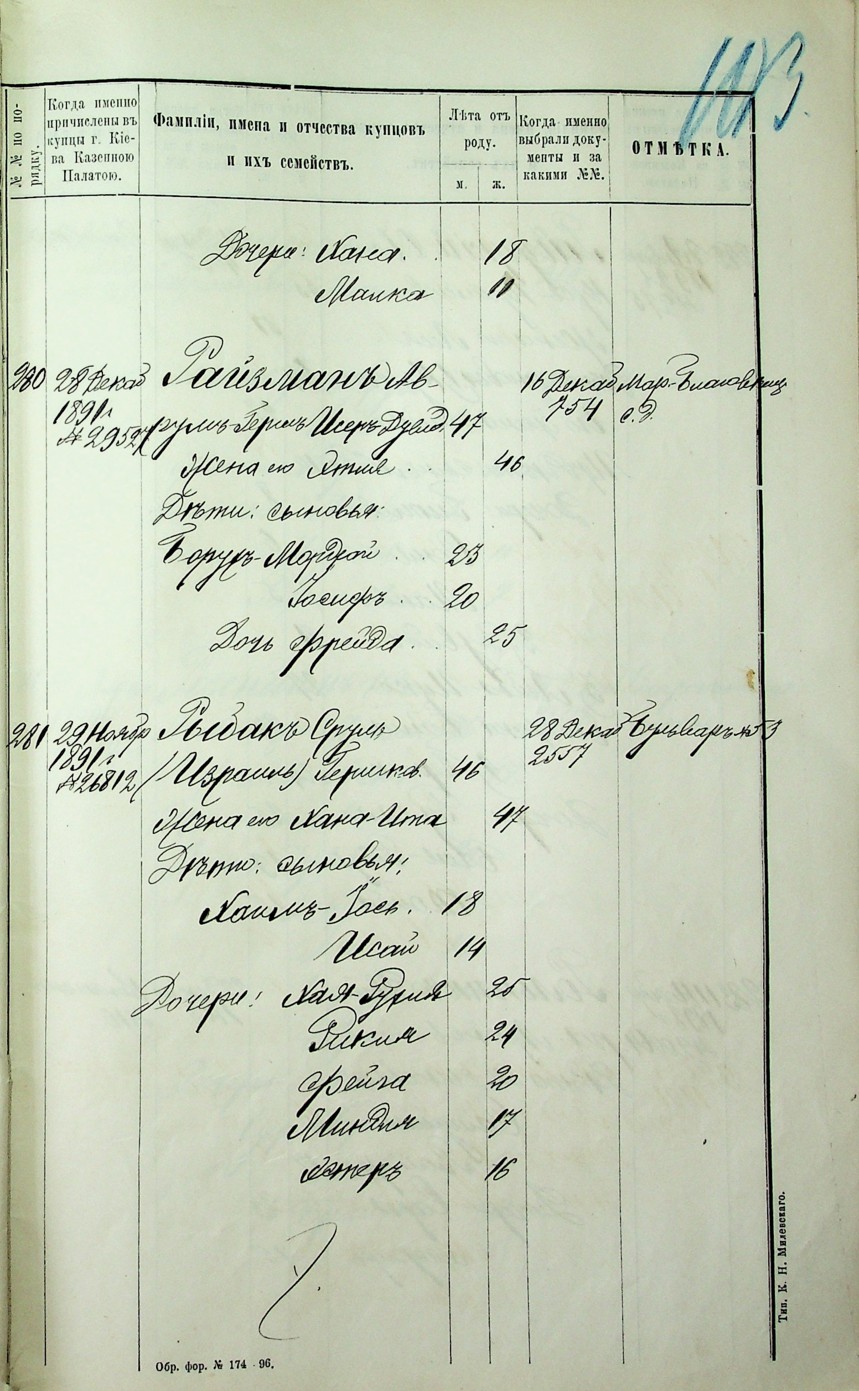 №№ по порядку.
Когда именно
причислены въ
купцы г. Кіе-
ва Казенною
Палатою.
Фамиліи, имена и отчества купцовъ
и ихъ семействъ.
Лѣта отъ
роду.
м. ж.
Когда именно
выбрали доку-
менты и за
какими №№.
ОТМѢТКА.
Дочери: Хана. 18
Малка 11
280 28 Декаб Райзманъ Ав- 16 Декаб Мар.-Благовѣщ
1891 г 754 с. д.
№ 29527 румъ-Гершъ Исеръ Дувид. 47
Жена его 46
Дѣти: сыновья:
Борухъ-Мордхай 23
Іосифъ 20
Дочь Фрейда 25
281 29 Ноябр Рыбакъ Сруль 28 Декаб Бульваръ № 53
1891 г 2557
№ 26812 (Израиль) Гершков. 46
Жена его Хана-Ита 47
Дѣти: сыновья:
Хаимъ-Іось. 18
Исай 14
Дочери: Хая-Рухля 25
24
Фейга 20
Миндля 17
Эстеръ 16
Обр. фор. № 174 - 96.
Тип. К. Н. Милевскаго.